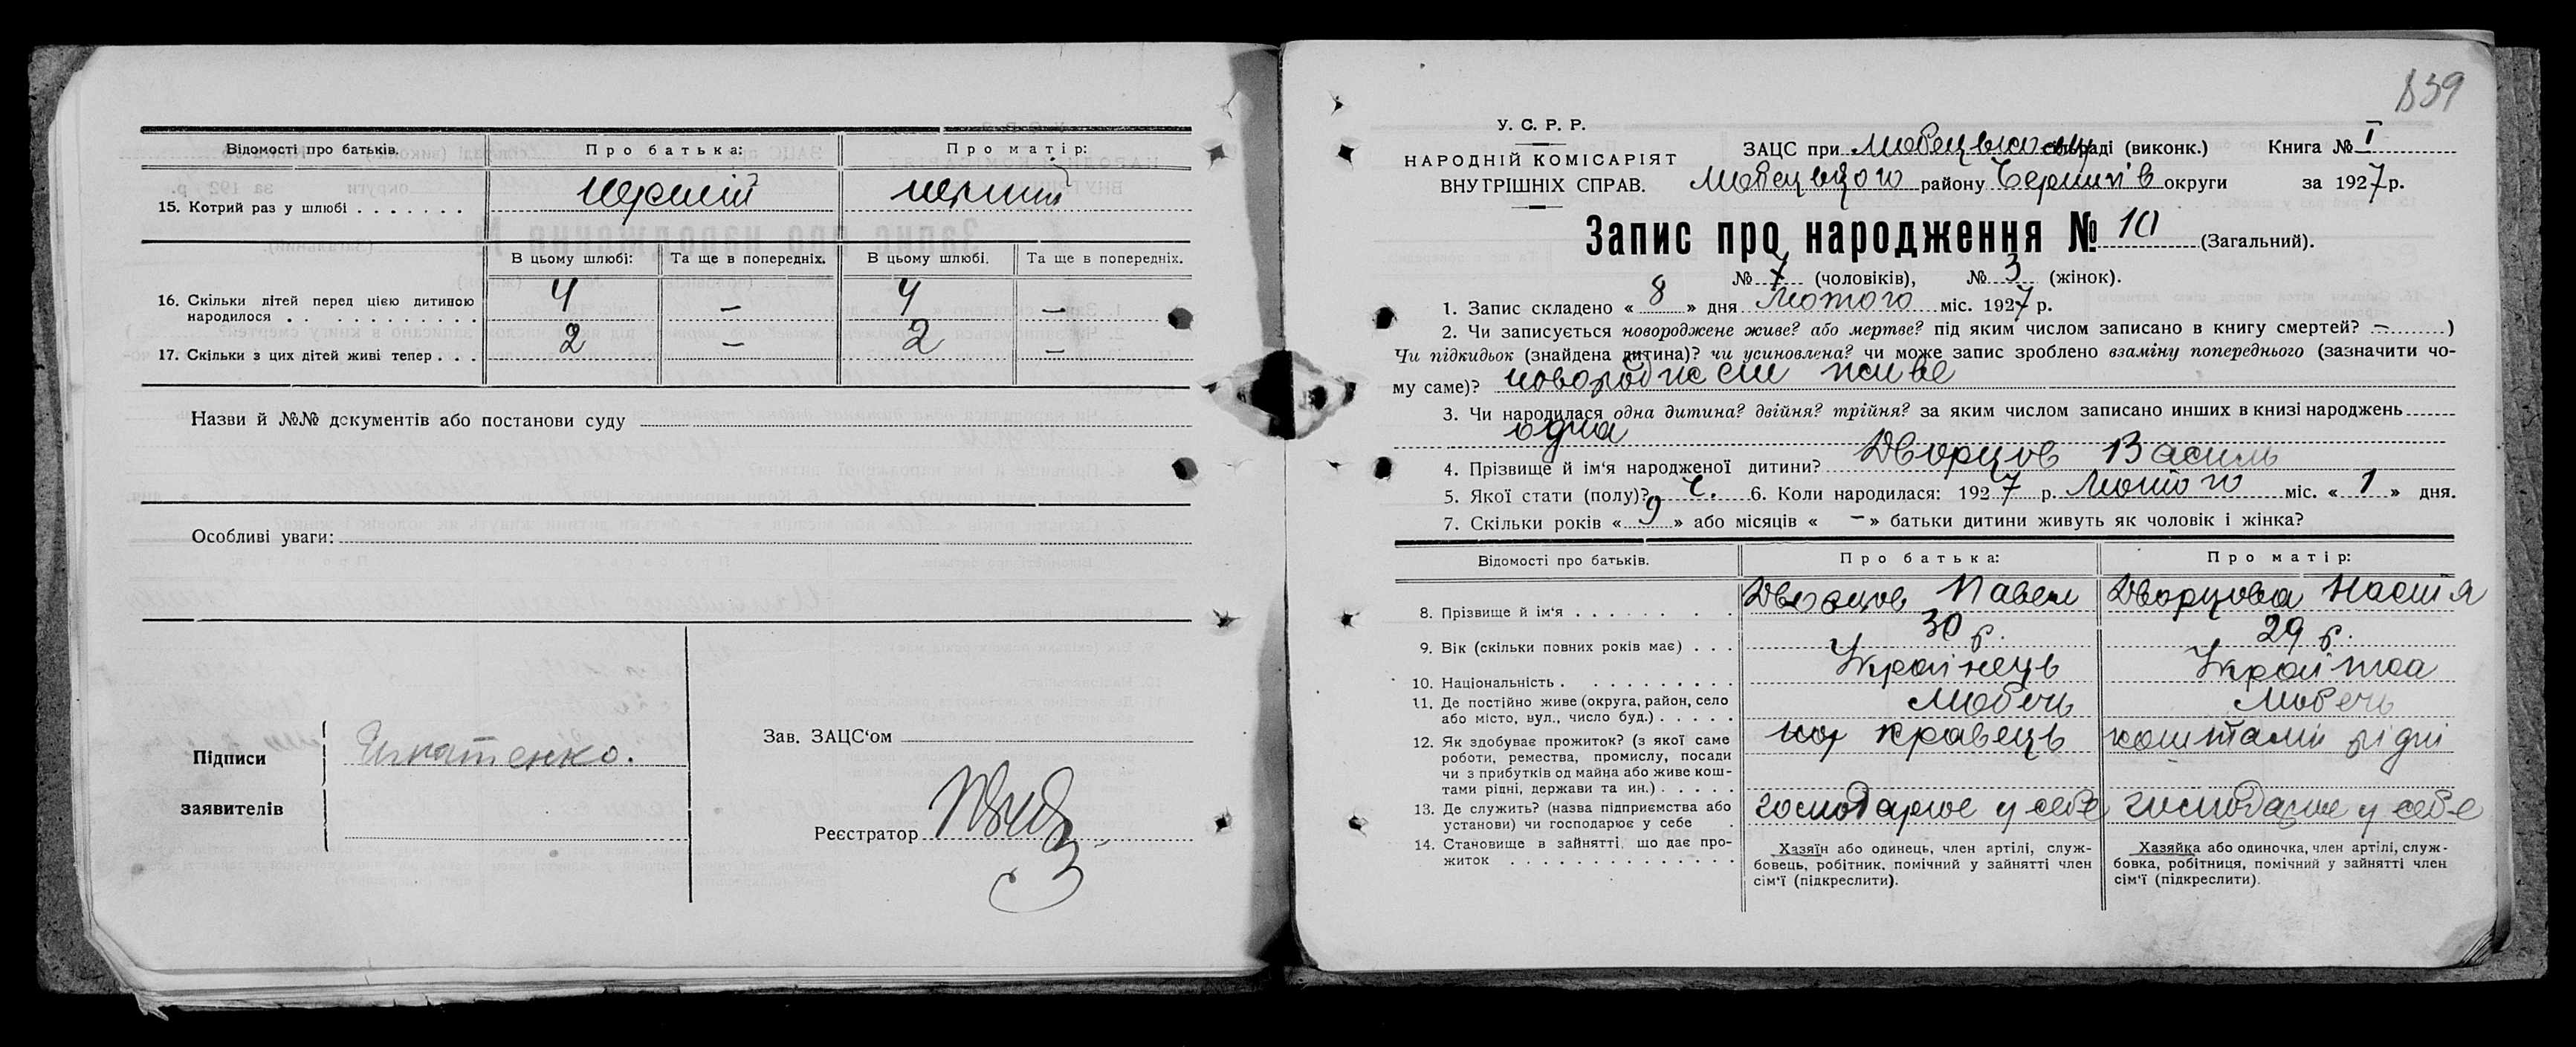 Відомості про батьків. Про батька: Про матір:
15. Котрий раз у шлюбі . . . . . . . перший перший
В цьому шлюбі: Та ще в попередніх. В цьому шлюбі. Та ще в попередніх.
16. Скільки дітей перед цією дитиною
народилося . . . . . . . . . . . 4 – 4 –
17. Скільки з цих дітей живі тепер . . . 2 – 2 –
Назви й №№ документів або постанови суду
Особливі уваги:
Підписи
заявителів
Игнатенко.
Зав. ЗАЦС'ом
Реєстратор
839
У. С. Р. Р.
НАРОДНІЙ КОМІСАРІЯТ
ВНУТРІШНІХ СПРАВ.
ЗАЦС при Любецькому раді (виконк.) Книга № I
Любецького району Чернигів округи за 1927 р.
Запис про народження № 10 (Загальний).
№ 7 (чоловіків), № 3 (жінок).
1. Запис складено « 8 » дня Лютого міс. 1927 р.
2. Чи записується новороджене живе? або мертве? під яким числом записано в книгу смертей? – )
Чи підкидьок (знайдена дитина)? чи усиновлена? чи може запис зроблено взаміну попереднього (зазначити чо-
му саме)? новороджене живе
3. Чи народилася одна дитина? двійня? трійня? за яким числом записано инших в книзі народжень
одна
4. Прізвище й ім'я народженої дитини? Дворцов Василь
5. Якої стати (полу)? ч. 6. Коли народилася: 1927 р. Лютого міс. « 1 » дня.
7. Скільки років « 9 » або місяців « – » батьки дитини живуть як чоловік і жінка?
Відомості про батьків. Про батька: Про матір:
8. Прізвище й ім'я . . . . . . . . Дворцов Павел Дворцова Настя
9. Вік (скільки повних років має) . . . 30 р. 29 р.
10. Національність . . . . . . . . . . Українець Українка
11. Де постійно живе (округа, район, село
або місто, вул., число буд.) . . . . . Любечь Любечь
12. Як здобуває прожиток? (з якої саме
роботи, ремества, промислу, посади
чи з прибутків од майна або живе кош-
тами рідні, держави та ин.) . . . . . кравець коштами рідні
13. Де служить? (назва підприємства або
установи) чи господарює у себе . господарює у себе господарює у себе
14. Становище в зайнятті, що дає про-
житок . . . . . . . . . . . . . .
Хазяїн або одинець, член артілі, служ-
бовець, робітник, помічний у зайнятті член
сім'ї (підкреслити).
Хазяйка або одиночка, член артілі, служ-
бовка, робітниця, помічний у зайнятті член
сім'ї (підкреслити).